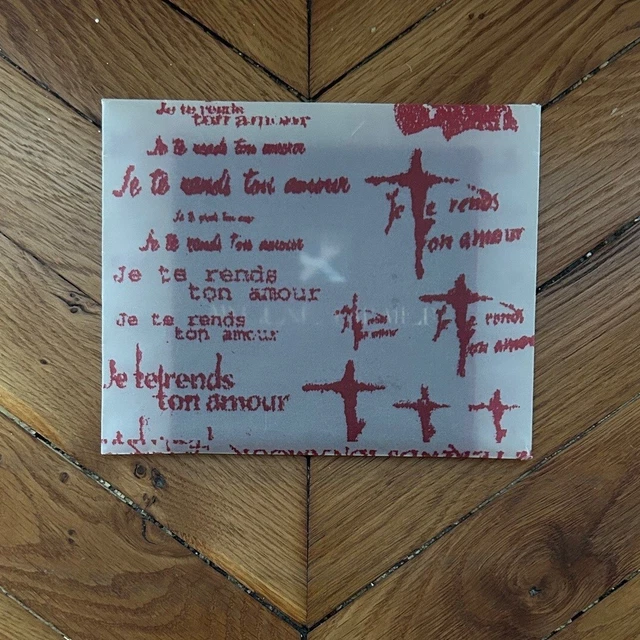 Je te rends
ton amour
Je te rends ton amour
Je te rends ton amour
Je te rends
ton amour
Je te rends ton amour
Je te rends ton amour
Je te rends
ton amour
Je te rends
ton amour
Je te rends
ton amour
Je te rends
ton amour